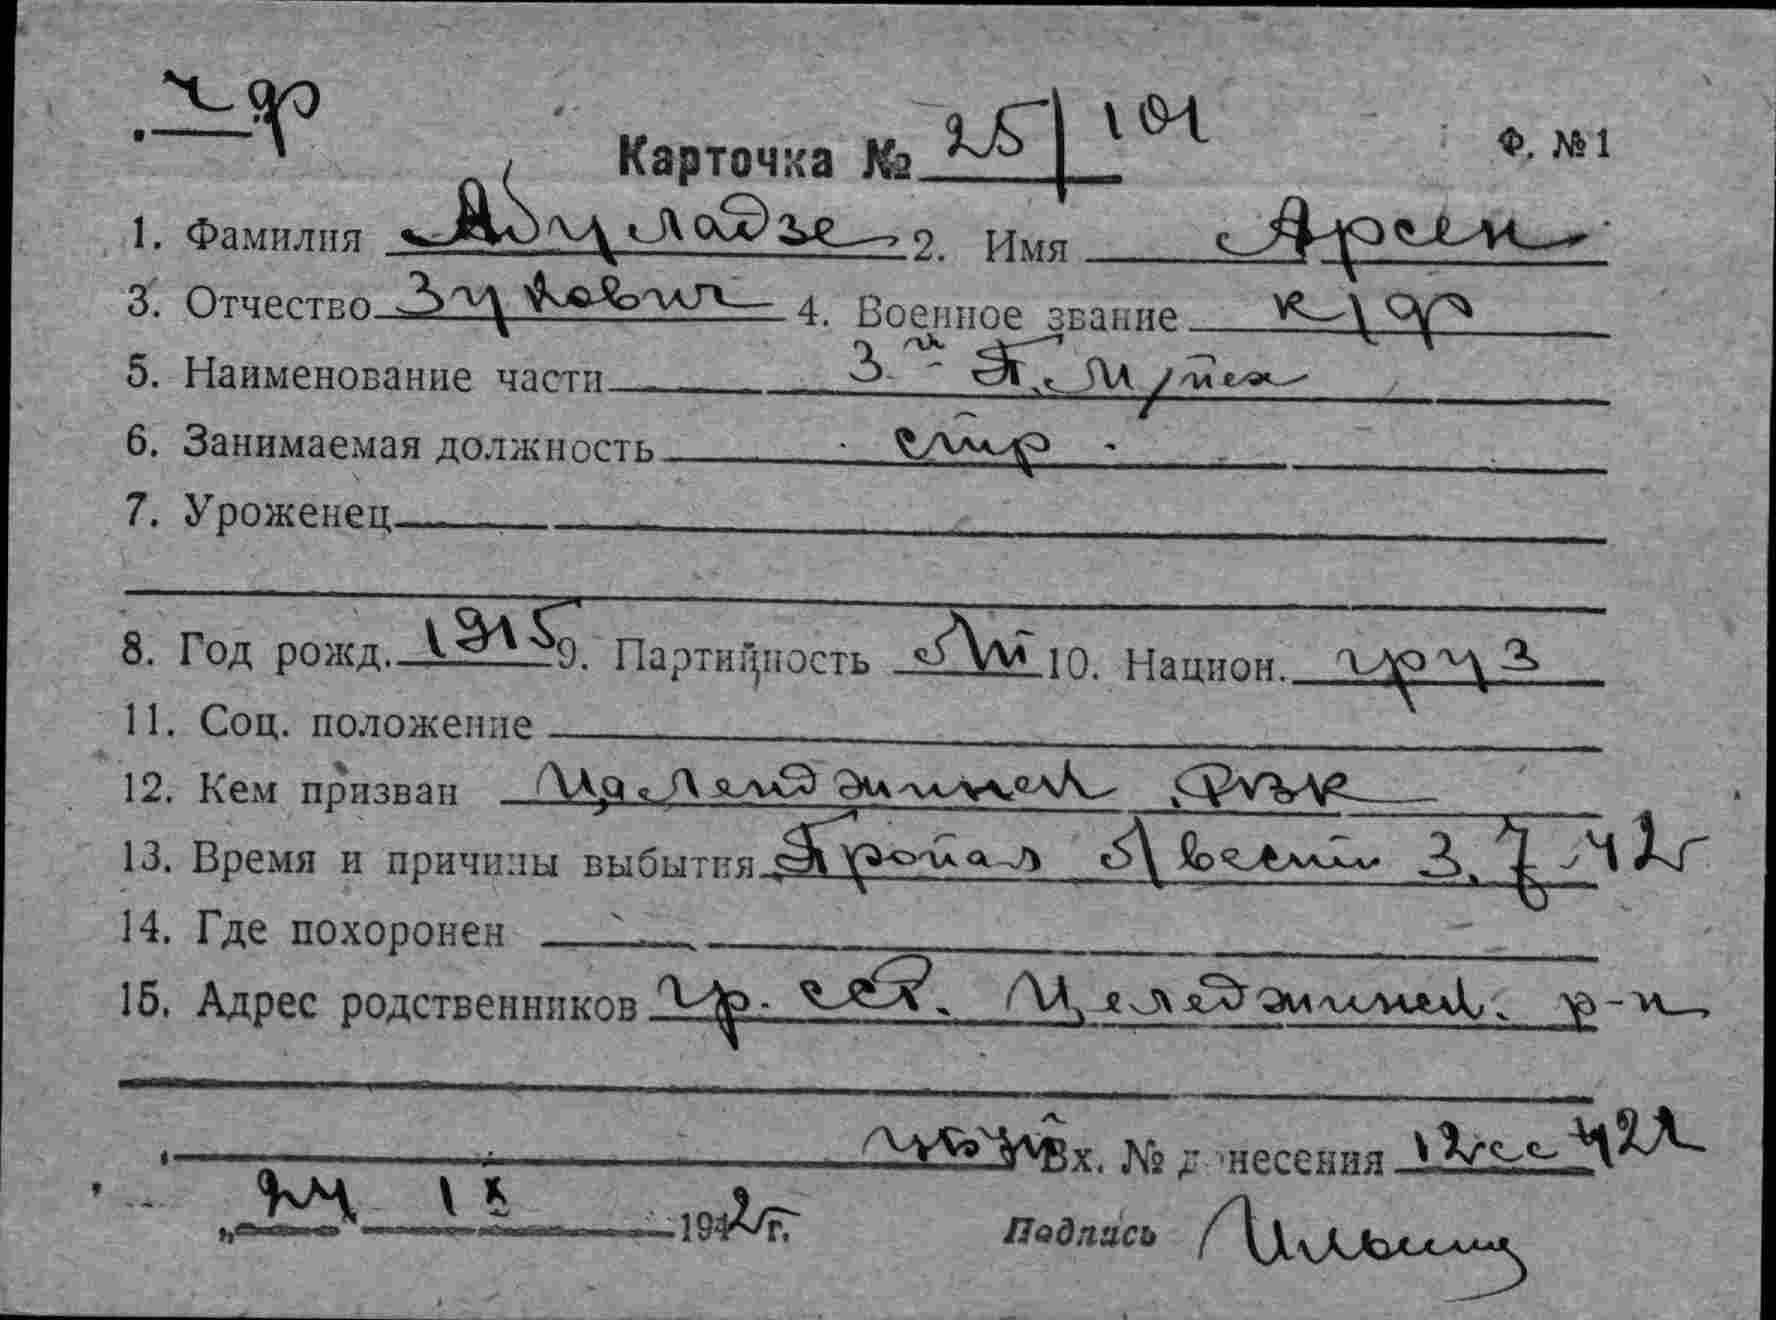 Карточка № 25/101 Ф. №1
1. Фамилия Абуладзе 2. Имя Арсен
3. Отчество Зукович 4. Военное звание к/ф
5. Наименование части 3й
6. Занимаемая должность стр
7. Уроженец
8. Год рожд. 1915 9. Партийность 10. Национ. груз
11. Соц. положение
12. Кем призван РВК
13. Время и причины выбытия Пропал 3.7.42г
14. Где похоронен
15. Адрес родственников гр. ССР. р-н
Вх. № донесения
„24 IX 1942 г. Подпись